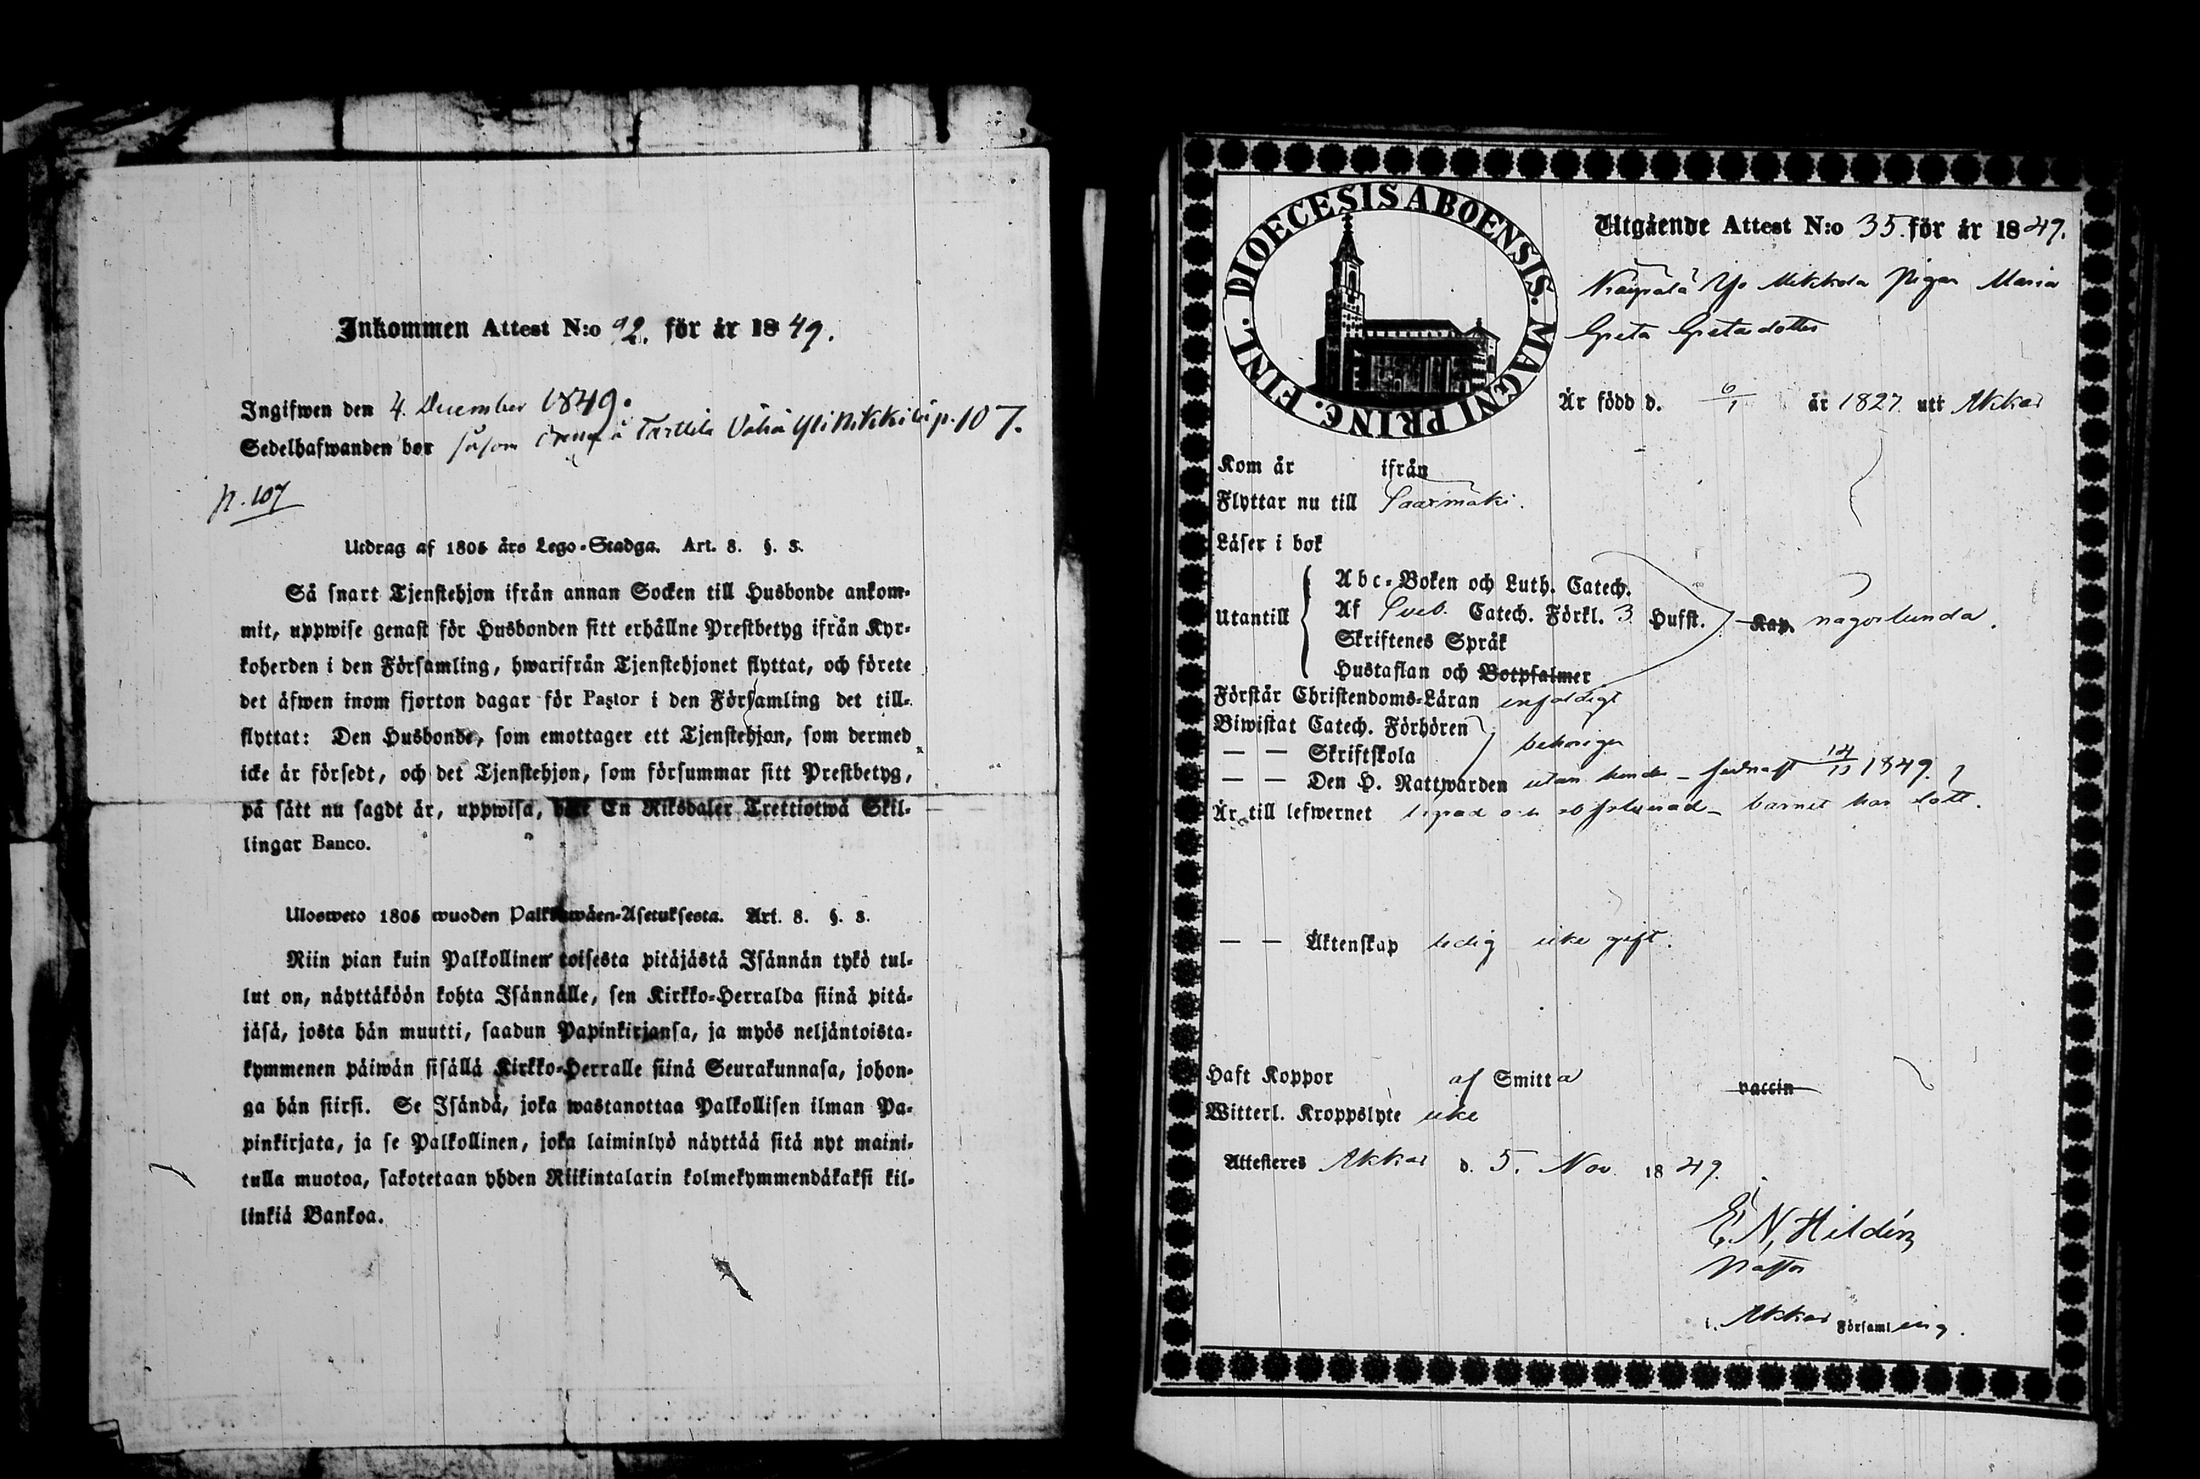 Inkommen Attest N:o 92. för år 1849.
Ingifwen den 4. December 1849.
Sedelhafwanden bor såsom å Tarttila Vähä Yli Nikkilä p. 107.
p. 107
Utdrag af 1805 års Lego-Stadga. Art. 8. §. 3.
Så snart Tjenstehjon ifrån annan Socken till Husbonde ankom-
mit, uppwise genast för Husbonden sitt erhållne Prestbetyg ifrån Kyr-
koherden i den Församling, hwarifrån Tjenstehjonet flyttat, och förete
det äfwen inom fjorton dagar för Pastor i den Församling det till-
flyttat: Den Husbonde, som emottager ett Tjenstehjon, som dermed
icke är försedt, och det Tjenstehjon, som försummar sitt Prestbetyg,
på sätt nu sagdt är, uppwisa, böte En Riksdaler Trettiotwå Skil-
lingar Banco.
Ulosweto 1805 wuoden Palkkawäen-Asetuksesta. Art. 8. §. 3.
Niin pian kuin Palkollinen toisesta pitäjästä Isännän tykö tul-
lut on, näyttäköön kohta Isännälle, sen Kirkko-Herralda siinä pitä-
jäsä, josta hän muutti, saadun Papinkirjansa, ja myös neljäntoista-
kymmenen päiwän sisällä Kirkko-Herralle siinä Seurakunnasa, johon-
ga hän siirsi. Se Isändä, joka wastanottaa Palkollisen ilman Pa-
pinkirjata, ja se Palkollinen, joka laiminlyö näyttää sitä nyt maini-
tulla muotoa, sakotetaan yhden Riikintalarin kolmekymmendäkaksi kil-
linkiä Bankoa.
DIOECESIS ABOENSIS. MAGNI PRINC. FINL.
Utgående Attest N:o 35. för år 1849.
Käyrälä Mikkola Pigan Maria
Greta Gretadotter
Är född d. 6/1 år 1827 uti Akkas
Kom år ifrån
Flyttar nu till Saarimäki.
Läser i bok
Utantill
Abc-Boken och Luth. Catech.
Af Sveb. Catech. Förkl. 3 Hufst. Kap. någorlunda.
Skriftenes Språk
Hustaflan och Botpsalmer
Förstår Christendoms-Läran enfaldigt
Biwistat Catech. Förhören
— — Skriftskola behörigen
— — Den H. Nattwarden utan hinder - sednast 1849.
Är till lefwernet och absolverad - barnet har dött.
— — Äktenskap ledig icke gift.
Haft Koppor af Smitta vaccin
Witterl. Kroppslyte icke
Attesteres Akkas d. 5. Nov. 1849.
E. N. Hildén
Pastor
i Akkas Församling.